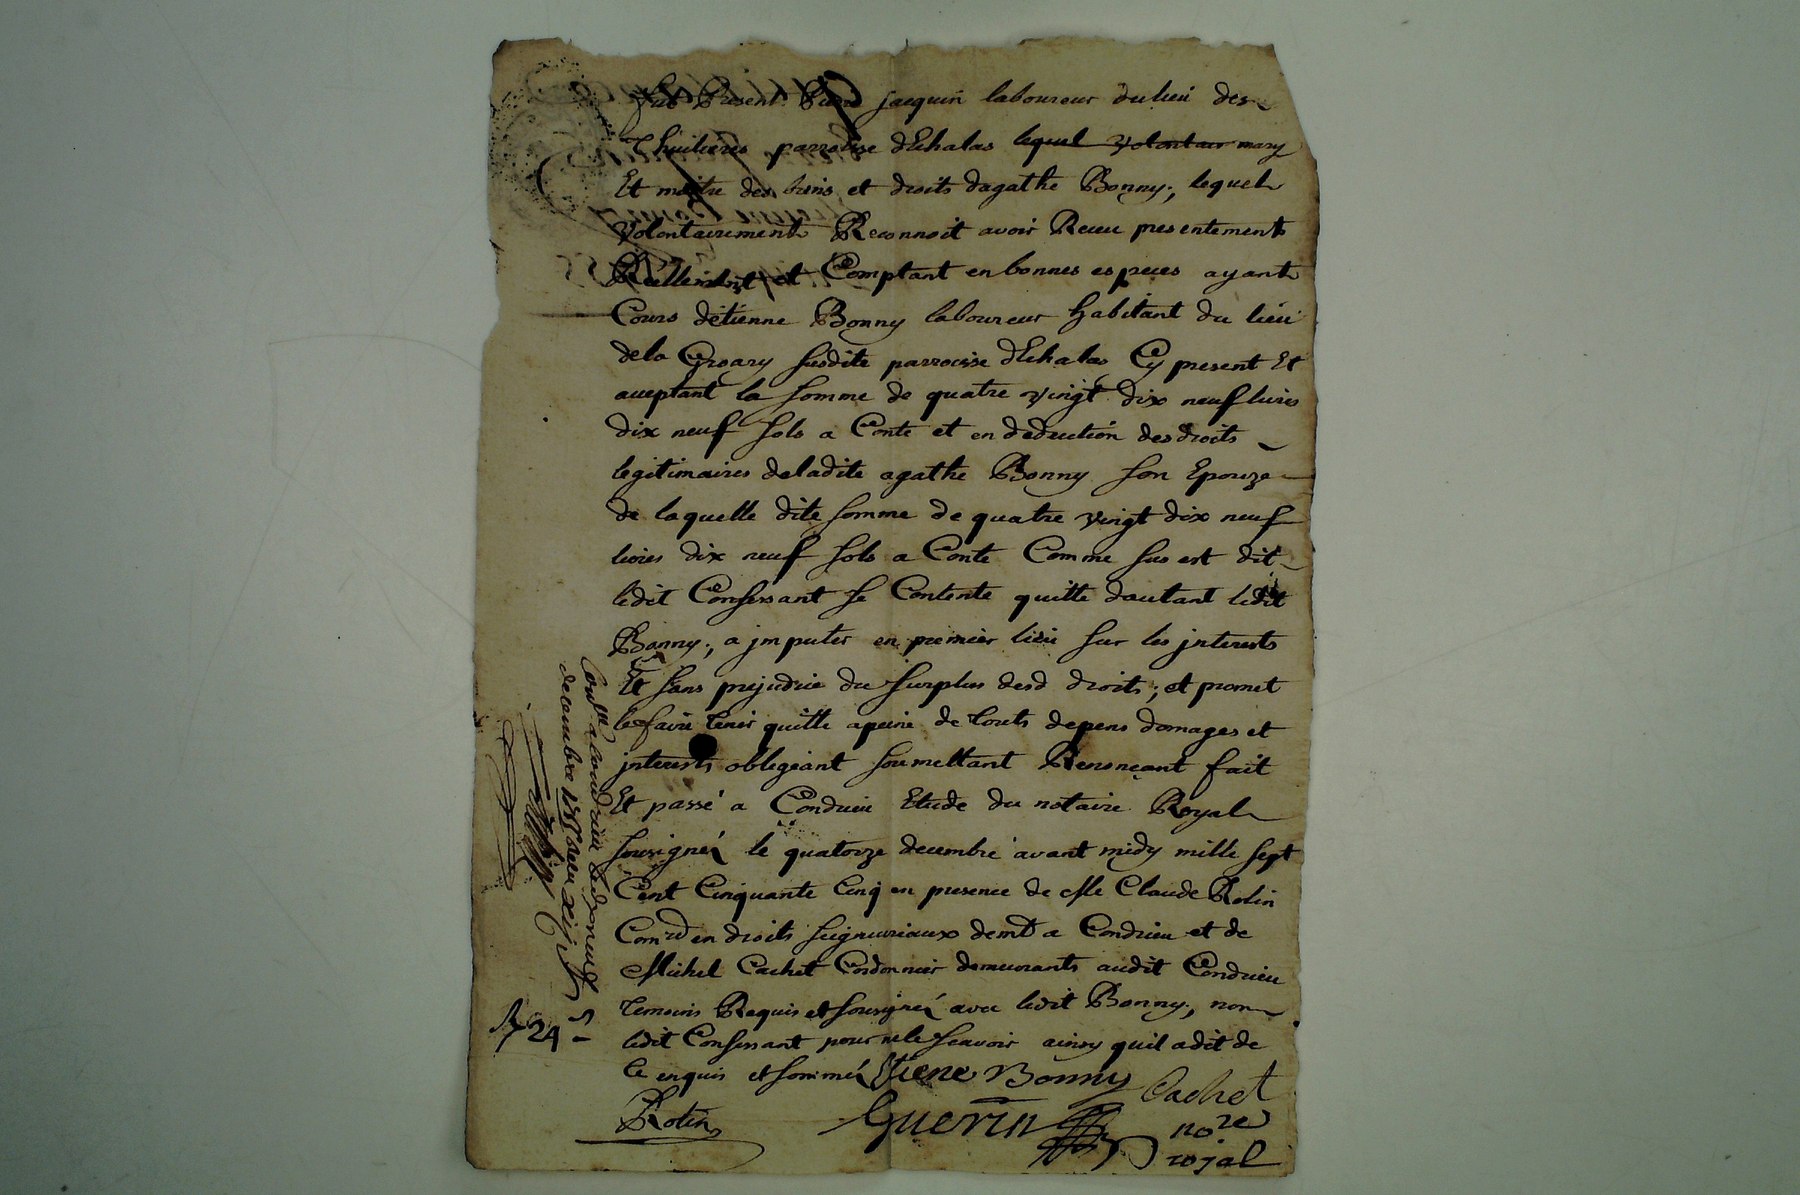 fut Present Pierre jacquin laboureur du lieu des
Thuilieres parroisse dEchalas lequel volontair mary
Et maitre des biens et droits dagathe Bonny; lequel
volontairement Reconnoit avoir Receu presentement
Reellement et Comptant en bonnes especes ayant
Cours détienne Bonny laboureur habitant du lieu
dela Croary susdite parroisse dEchalas Cy present Et
aceptant la somme de quatre vingt dix neuf livres
dix neuf sols a Conte et en deduction des droits
legitimaires deladite agathe Bonny son Epouze
de laquelle dite somme de quatre vingt dix neuf
livres dix neuf sols a Conte Comme sus est dit
ledit Confessant se Contente quitte dautant ledit
Bonny; a jmputer en premier lieu sur les jnterests
Et sans prejudice du surplus desd droits; et promet
le faire tenir quitte apeine de touts depens domages et
jnterests obligeant soumettant Renonçant fait
Et passé a Condrieu Etude du notaire Royal
sousigné le quatorze decembre avant midy mille sept
Cent Cinquante Cinq en presence de Me Claude Rolin
Com.re en droits seigneuriaux demt a Condrieu et de
Michel Cachet Cordonnier demeurants audit Condrieu
temoins Requis et sousignéz avec ledit Bonny; non
ledit Confessant pour ne le scavoir ainsy quil a dit de
ce enquis et sommé Etiene Bonny
Cachet
Rolin
Guerin
no.re
royal
a Condrieu
decembre 1755
24 s